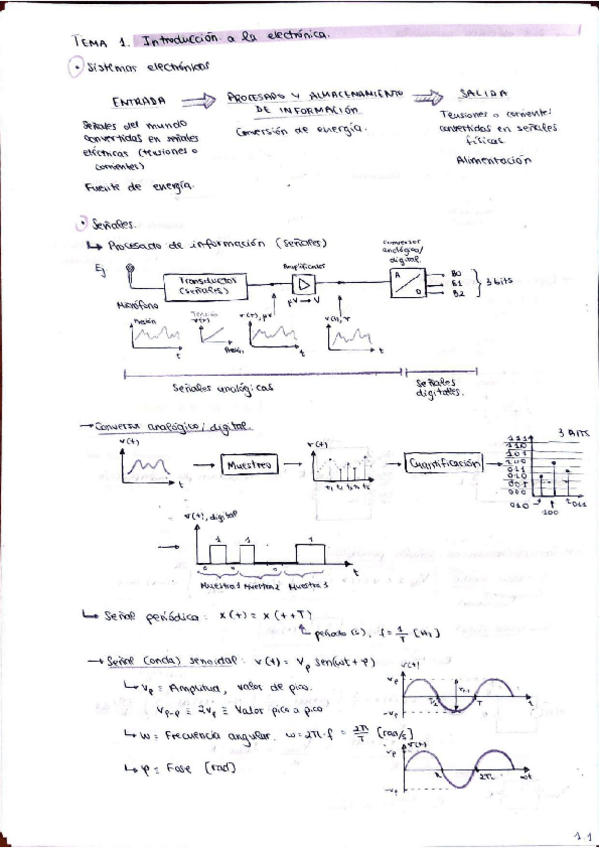 TEMA 1. Introducción a la electrónica.
Sistemas electrónicos
ENTRADA ⇒ PROCESADO Y ALMACENAMIENTO DE INFORMACIÓN ⇒ SALIDA
Señales del mundo convertidas en señales eléctricas (tensiones o corrientes)
Fuente de energía.
Conversión de energía.
Tensiones o corrientes convertidas en señales físicas
Alimentación
Señales.
↳ Procesado de información (señales)
Ej
Micrófono
Transductor (señales)
Amplificador
μV → V
conversor analógico/digital.
A
D
B0
B1
B2
3 bits
Presión
t
Tensión
v(t)
Presión
v(t), μV
t
v(t), V
t
Señales analógicas
Señales digitales.
→ Conversor analógico/digital.
v(t)
t
→ Muestreo →
v(t)
t1 t2 t3 t4 t5
→ Cuantificación
3 BITS
111
110
101
100
011
010
001
000
010
100
011
v(t), digital
1 1 1
0
t
Muestra 1 Muestra 2 Muestra 3
↳ Señal periódica: x(t) = x(t+T)
período (s), f = 1/T [Hz]
→ Señal (onda) senoidal: v(t) = Vp sen(ωt + φ)
↳ Vp ≡ Amplitud, valor de pico.
Vp-p ≡ 2Vp ≡ Valor pico a pico
↳ ω ≡ Frecuencia angular. ω = 2π·f = 2π/T [rad/s]
↳ φ ≡ Fase [rad]
v(t)
Vp
-Vp
Vp-p
T/2
T
t
v(t)
Vp
-Vp
π
2π
ωt
1.1